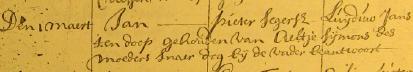 Den 1 maert Jan Pieter Segersz Luijduw Jans
ten doop gehouden van Aeltje Sijmons des
moeders snaer dog bij de vader beantwoort